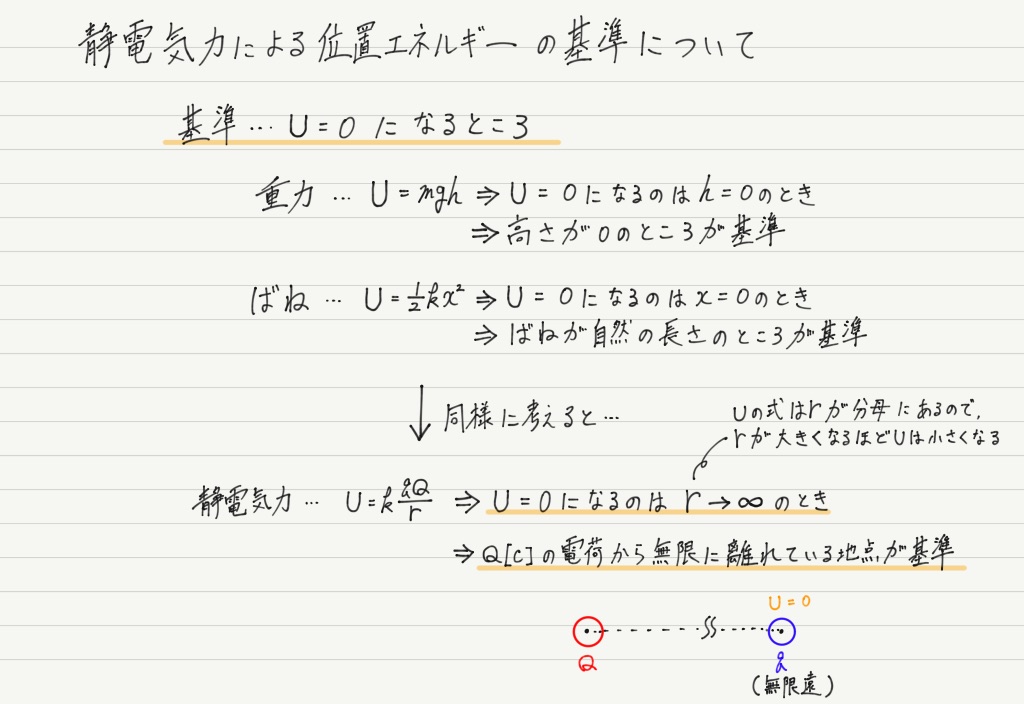 静電気力による位置エネルギーの基準について
基準… U=0 になるところ
重力 … U=mgh ⇒ U=0になるのはh=0のとき
⇒ 高さが0のところが基準
ばね … U=1/2kx² ⇒ U=0になるのはx=0のとき
⇒ ばねが自然の長さのところが基準
↓ 同様に考えると…
Uの式はrが分母にあるので,
rが大きくなるほどUは小さくなる
静電気力 … U=k qQ/r ⇒ U=0になるのは r→∞ のとき
⇒ Q[C]の電荷から無限に離れている地点が基準
U=0
Q
q
(無限遠)